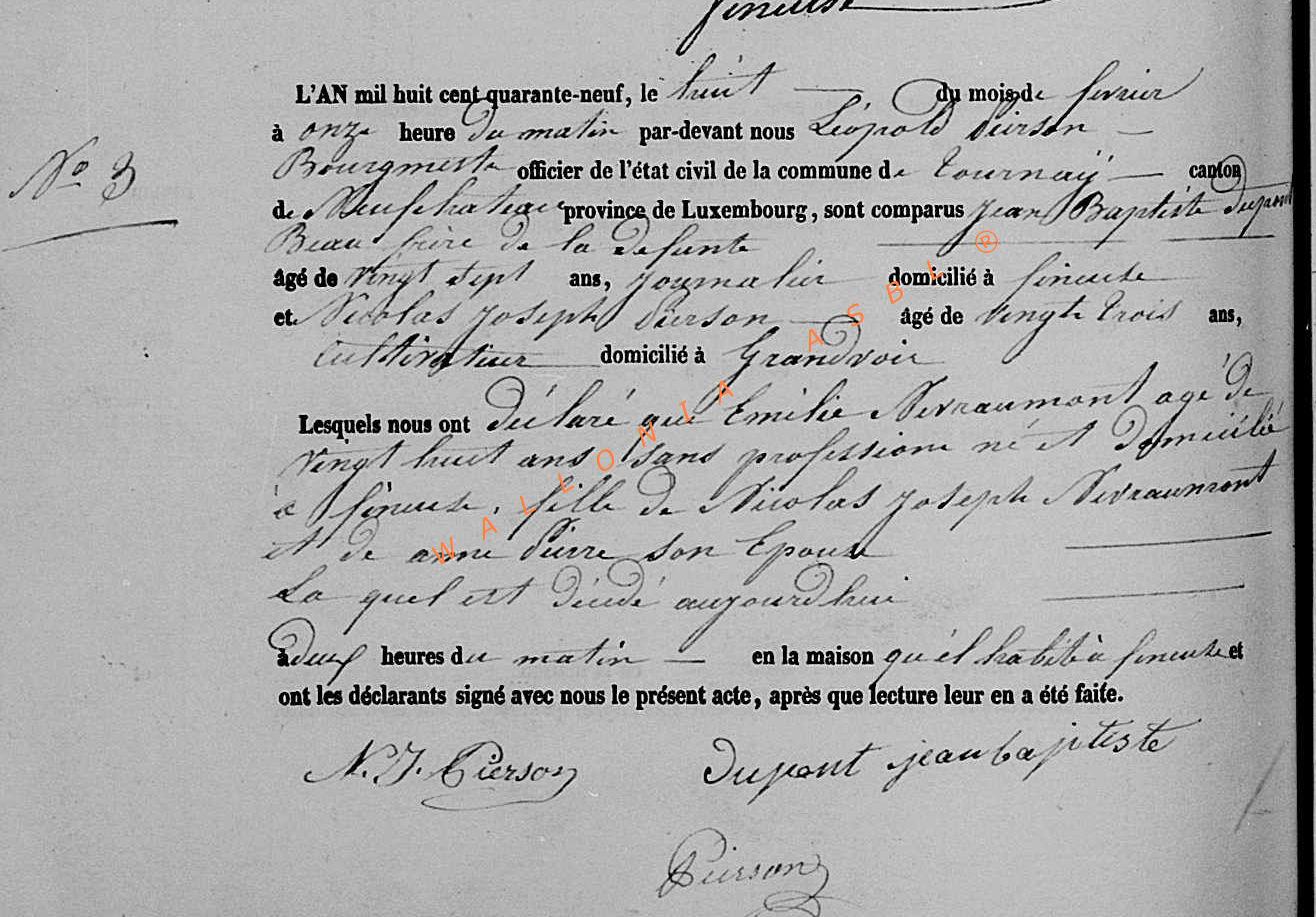 fineuse
L'AN mil huit cent quarante-neuf, le huit du mois de fevrier
à onze heure du matin par-devant nous Léopold Pierson
N° 3
Bourgmestre officier de l'état civil de la commune de Tournaÿ canton
de Neufchateau province de Luxembourg, sont comparus Jean Baptiste Dupont
Beau frère de la defunte
âgé de vingt sept ans, journalier domicilié à fineuse
et Nicolas Joseph Pierson âgé de vingt trois ans,
Cultivateur domicilié à Grandvoir
Lesquels nous ont déclaré que Emélie Nevraumont agé de
vingt huit ans sans profession né et domicilié
à fineuse, fille de Nicolas Joseph Nevraumont
et de anne Pierre son Epouse
La quel est décédé aujourdhui
à deux heures du matin en la maison qu'él habite à fineuse et
ont les déclarants signé avec nous le présent acte, après que lecture leur en a été faite.
N. J. Pierson Dupont jean baptiste
Pierson
WALLONIA ASBL ®